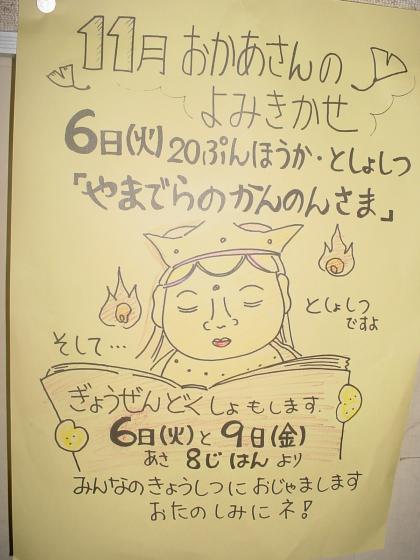 11月 おかあさんの
よみきかせ
6日(火) 20ぷんほうか・としょしつ
「やまでらのかんのんさま」
としょしつ
ですよ
そして…
ぎょうぜんどくしょもします.
6日(火)と 9日(金)
あさ 8じはんより
みんなのきょうしつにおじゃまします
おたのしみにネ!